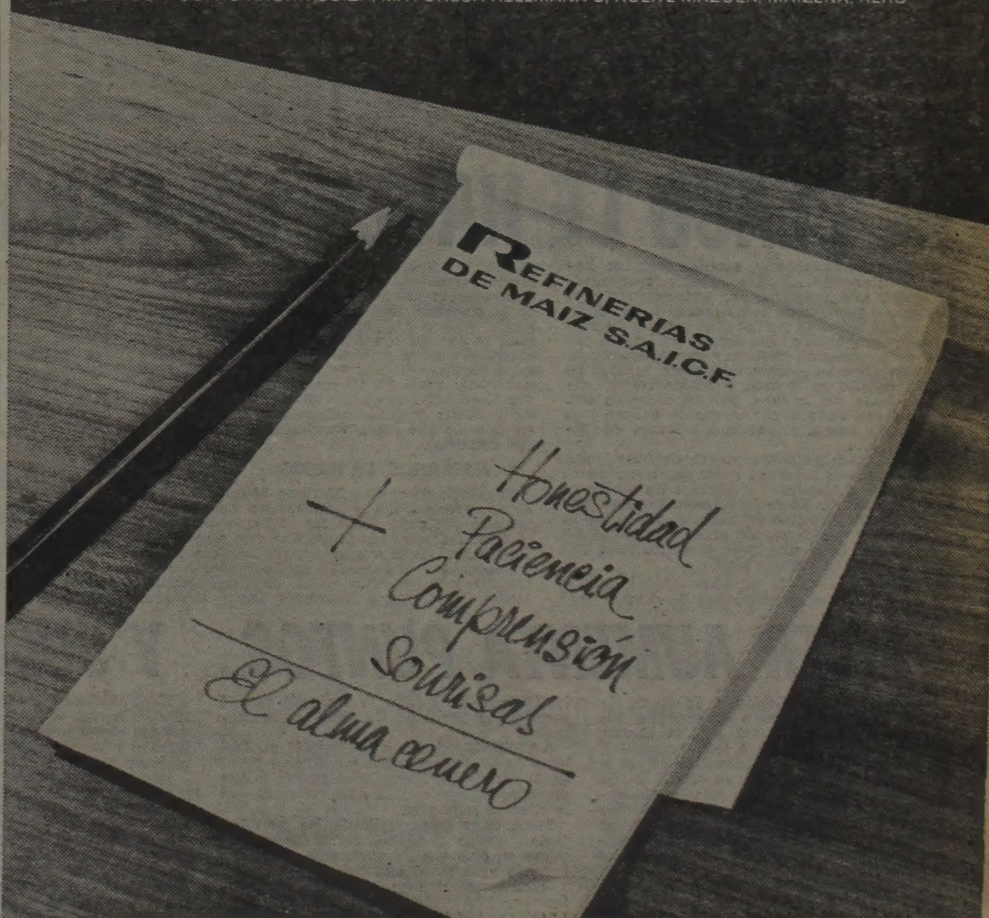 REFINERIAS
DE MAIZ S.A.I.C.F.
Honestidad
+ Paciencia
Comprensión
Sonrisas
El almacenero